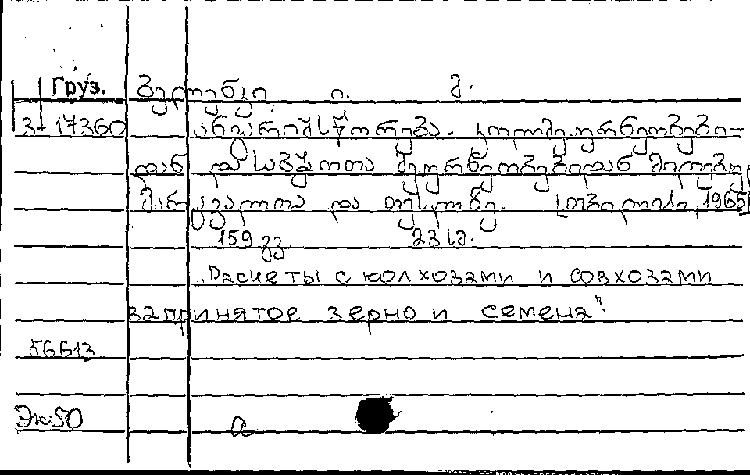 Груз. ბელენკი ი. მ.
3-17360 ანგარიშსწორება კოლმეურნეობებ-
თან და საბჭოთა მეურნეობებთან მიღებულ
მარცვალსა და თესლზე. [თბილისი, 1965]
159 გვ 23 სმ.
„Расчеты с колхозами и совхозами
за принятое зерно и семена"
56613
Эк 50 а